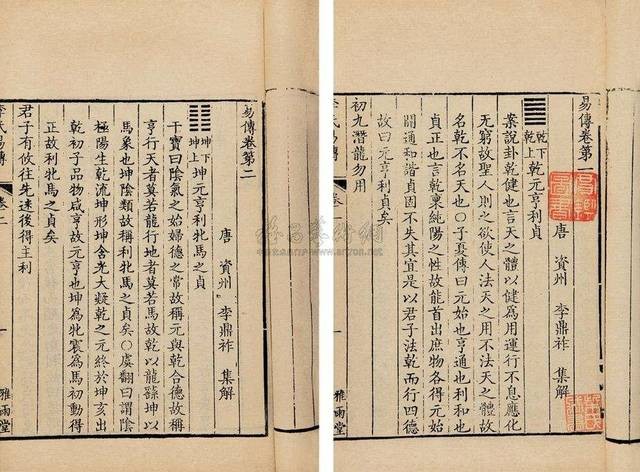 易傳卷第一
唐 資州 李鼎祚 集解
乾下乾上 乾元亨利貞
案說卦乾健也言天之體以健為用運行不息應化
无窮故聖人則之欲使人法天之用不法天之體故
名乾不名天也○子夏傳曰元始也亨通也利和也
貞正也言乾稟純陽之性故能首出庶物各得元始
開通和諧貞固不失其宜是以君子法乾而行四德
故曰元亨利貞矣
初九潛龍勿用
李氏易傳 卷一 一 雅雨堂
易傳卷第二
唐 資州 李鼎祚 集解
坤下坤上 坤元亨利牝馬之貞
干寶曰陰氣之始婦德之常故稱元與乾合德故稱
亨行天者莫若龍行地者莫若馬故乾以龍繇坤以
馬象也坤陰類故稱利牝馬之貞矣○虞翻曰謂陰
極陽生乾流坤形坤含光大凝乾之元終於坤亥出
乾初子品物咸亨故元亨也坤為牝震為馬初動得
正故利牝馬之貞矣
君子有攸往先迷後得主利
李氏易傳 卷二 一 雅雨堂